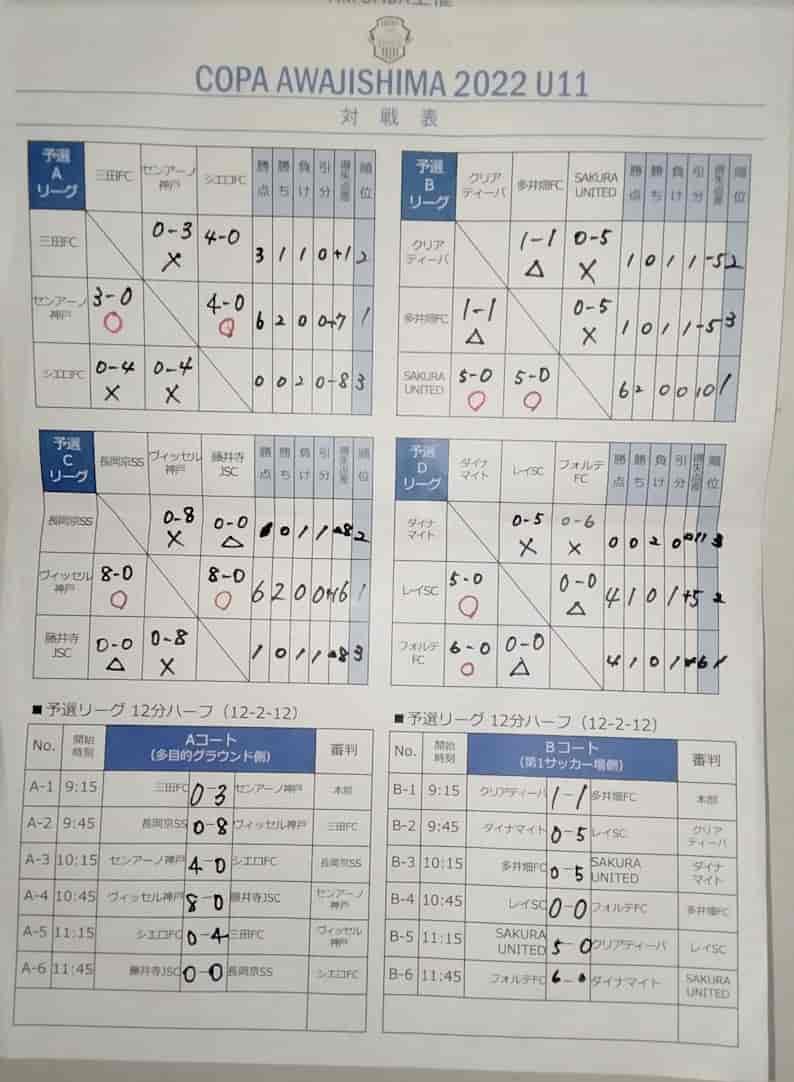 COPA AWAJISHIMA 2022 U11
対戦表
予選Aリーグ 三田FC センアーノ神戸 シエロFC 勝点 勝ち 負け 引分 得失点差 順位
三田FC 0-3 × 4-0 3 1 1 0 +1 2
センアーノ神戸 3-0 ○ 4-0 ○ 6 2 0 0 +7 1
シエロFC 0-4 × 0-4 × 0 0 2 0 -8 3
予選Bリーグ クリアティーバ 多井畑FC SAKURA UNITED 勝点 勝ち 負け 引分 得失点差 順位
クリアティーバ 1-1 △ 0-5 × 1 0 1 1 -5 2
多井畑FC 1-1 △ 0-5 × 1 0 1 1 -5 3
SAKURA UNITED 5-0 ○ 5-0 ○ 6 2 0 0 10 1
予選Cリーグ 長岡京SS ヴィッセル神戸 藤井寺JSC 勝点 勝ち 負け 引分 得失点差 順位
長岡京SS 0-8 × 0-0 △ 0 1 1 -8 2
ヴィッセル神戸 8-0 ○ 8-0 ○ 6 2 0 0 +16 1
藤井寺JSC 0-0 △ 0-8 × 1 0 1 1 -8 3
予選Dリーグ ダイナマイト レイSC フォルテFC 勝点 勝ち 負け 引分 得失点差 順位
ダイナマイト 0-5 × 0-6 × 0 0 2 0 -11 3
レイSC 5-0 ○ 0-0 △ 4 1 0 1 +5 2
フォルテFC 6-0 ○ 0-0 △ 4 1 0 1 +6 1
■予選リーグ 12分ハーフ（12-2-12）
No. 開始時刻 Aコート（多目的グラウンド側） 審判
A-1 9:15 三田FC 0-3 センアーノ神戸 本部
A-2 9:45 長岡京SS 0-8 ヴィッセル神戸 三田FC
A-3 10:15 センアーノ神戸 4-0 シエロFC 長岡京SS
A-4 10:45 ヴィッセル神戸 8-0 藤井寺JSC センアーノ神戸
A-5 11:15 シエロFC 0-4 三田FC ヴィッセル神戸
A-6 11:45 藤井寺JSC 0-0 長岡京SS シエロFC
■予選リーグ 12分ハーフ（12-2-12）
No. 開始時刻 Bコート（第1サッカー場側） 審判
B-1 9:15 クリアティーバ 1-1 多井畑FC 本部
B-2 9:45 ダイナマイト 0-5 レイSC クリアティーバ
B-3 10:15 多井畑FC 0-5 SAKURA UNITED ダイナマイト
B-4 10:45 レイSC 0-0 フォルテFC 多井畑FC
B-5 11:15 SAKURA UNITED 5-0 クリアティーバ レイSC
B-6 11:45 フォルテFC 6-0 ダイナマイト SAKURA UNITED